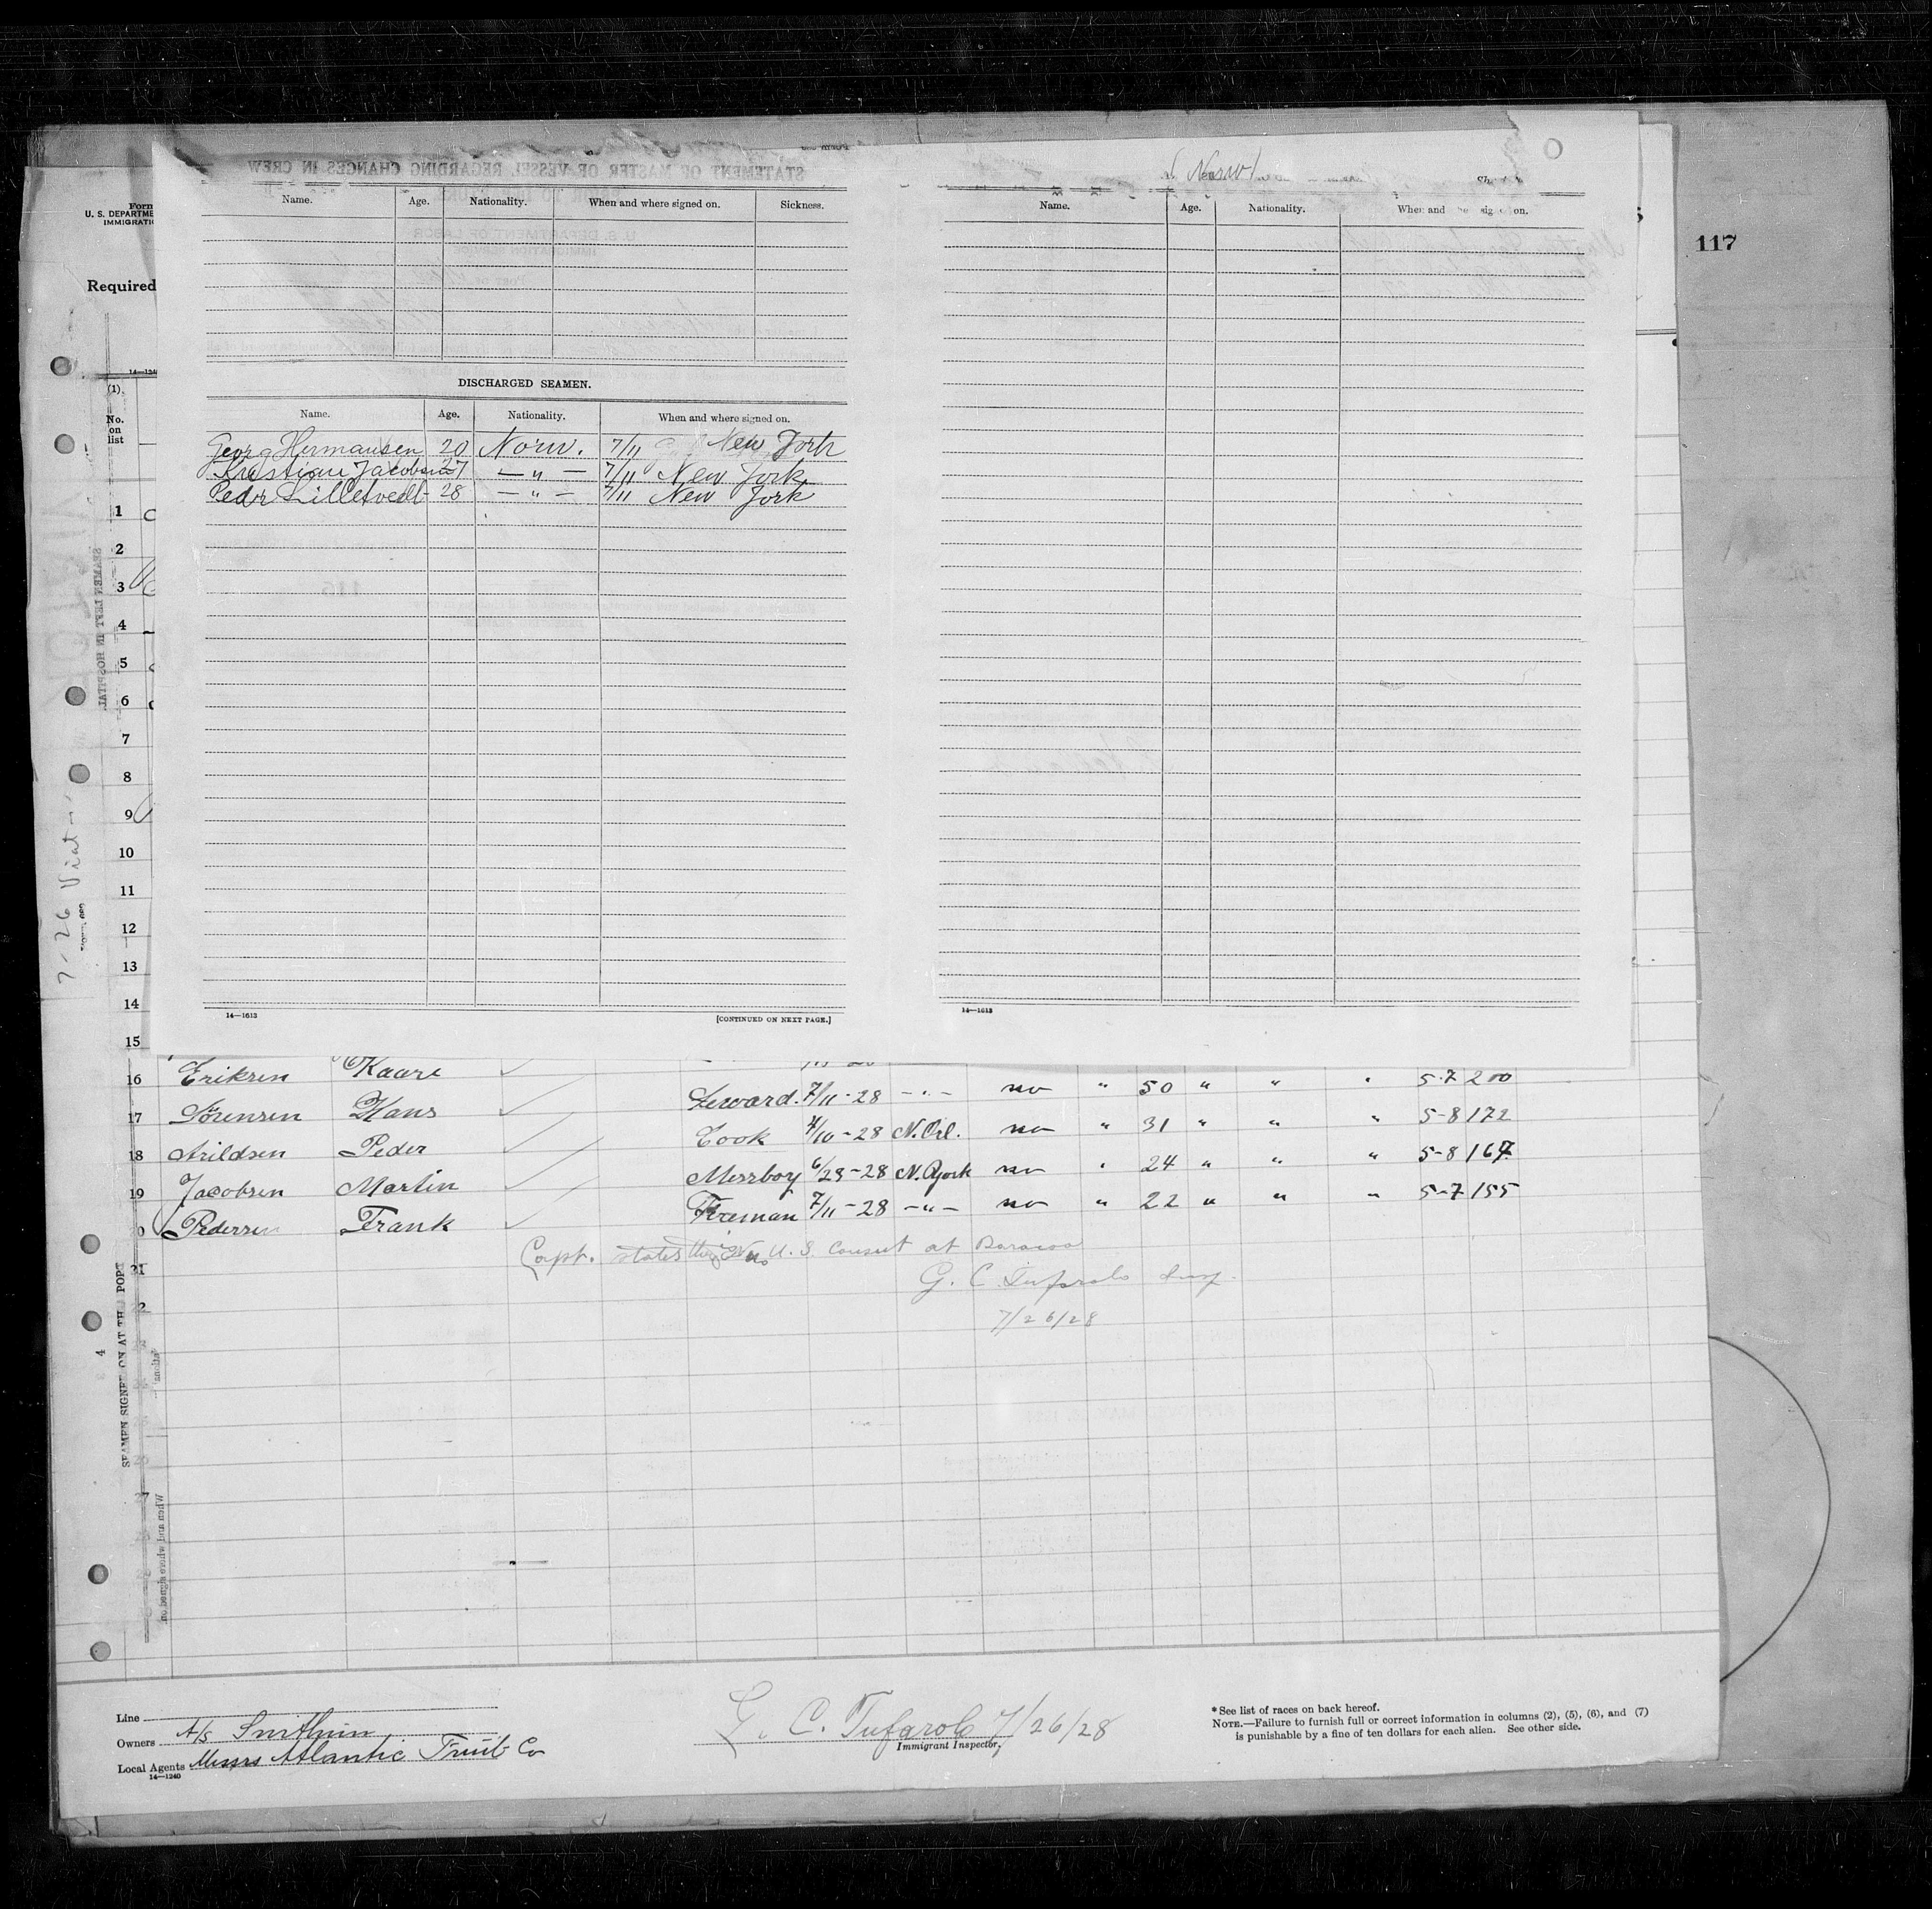 117
Form
U. S. DEPARTME
IMMIGRATIO
Required
14—1240
(1)
No.
on
list
STATEMENT OF MASTER OF VESSEL REGARDING CHANGES IN CREW
Name. Age. Nationality. When and where signed on. Sickness.
DISCHARGED SEAMEN.
Name. Age. Nationality. When and where signed on.
Georg Hermansen 20 Norw. 7/11 New York
Kristian Jacobsen 27 — " — 7/11 New York
Peder Lilletvedt 28 — " — 7/11 New York
14—1613 [CONTINUED ON NEXT PAGE.]
Name. Age. Nationality. When and where signed on.
14—1613
1
2
3
4
5
6
7
8
9
10
11
12
13
14
15
SEAMEN LEFT IN HOSPITAL
7-26
16 Eriksen Kaare
17 Sörensen Hans Steward. 7/11-28 -"- no " 50 " " " 5-7 200
18 Arildsen Peder Cook 7/10-28 N.Orl. no " 31 " " " 5-8 172
19 Jacobsen Martin Messboy 6/29-28 N.York no " 24 " " " 5-8 167
20 Pedersen Frank Fireman 7/11-28 -"- no " 22 " " " 5-7 155
21 Capt. states there is no U.S. Consul at Baracoa
G. C. Tufarolo Insp.
22
7/26/28
27
SEAMEN SIGNED ON AT THE PORT
4
When and where signed on.
Line
Owners A/s Smithuin
Local Agents Messrs Atlantic Fruit Co
14—1240
G. C. Tufarolo 7/26/28
Immigrant Inspector.
*See list of races on back hereof.
NOTE.—Failure to furnish full or correct information in columns (2), (5), (6), and (7)
is punishable by a fine of ten dollars for each alien. See other side.